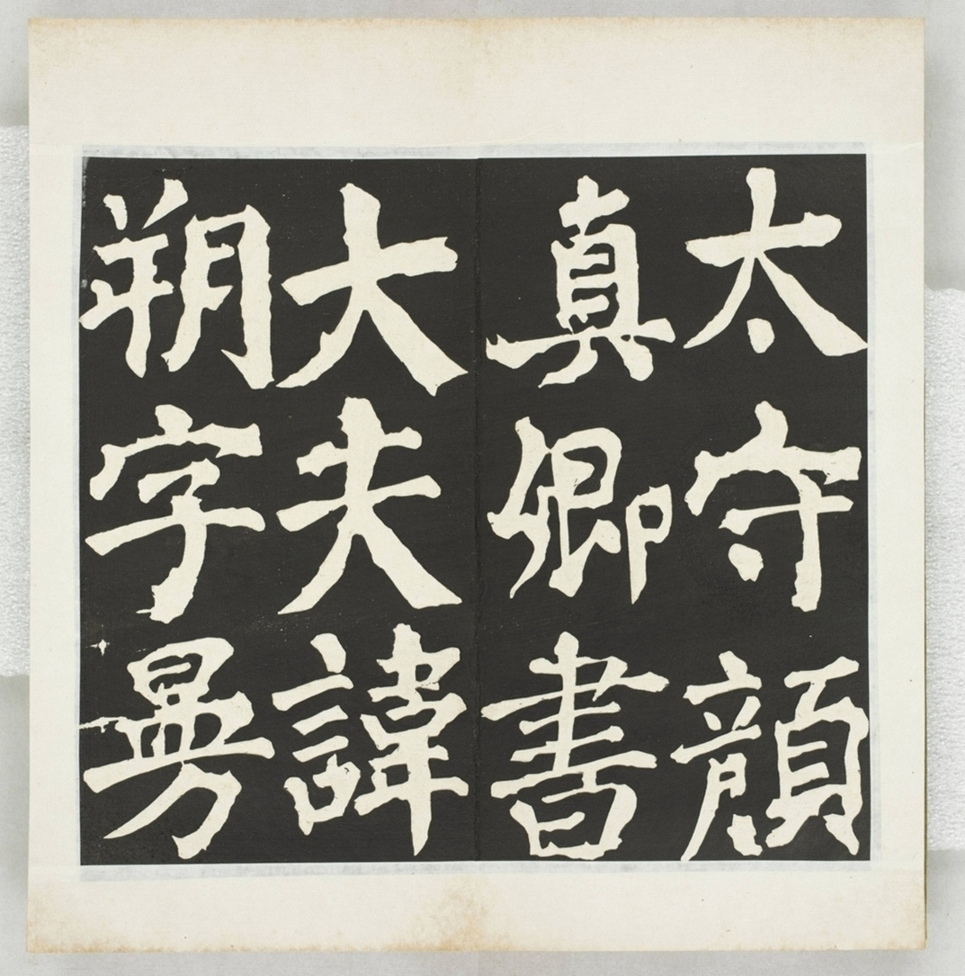 太守顏
真卿書
大夫諱
朔字曼